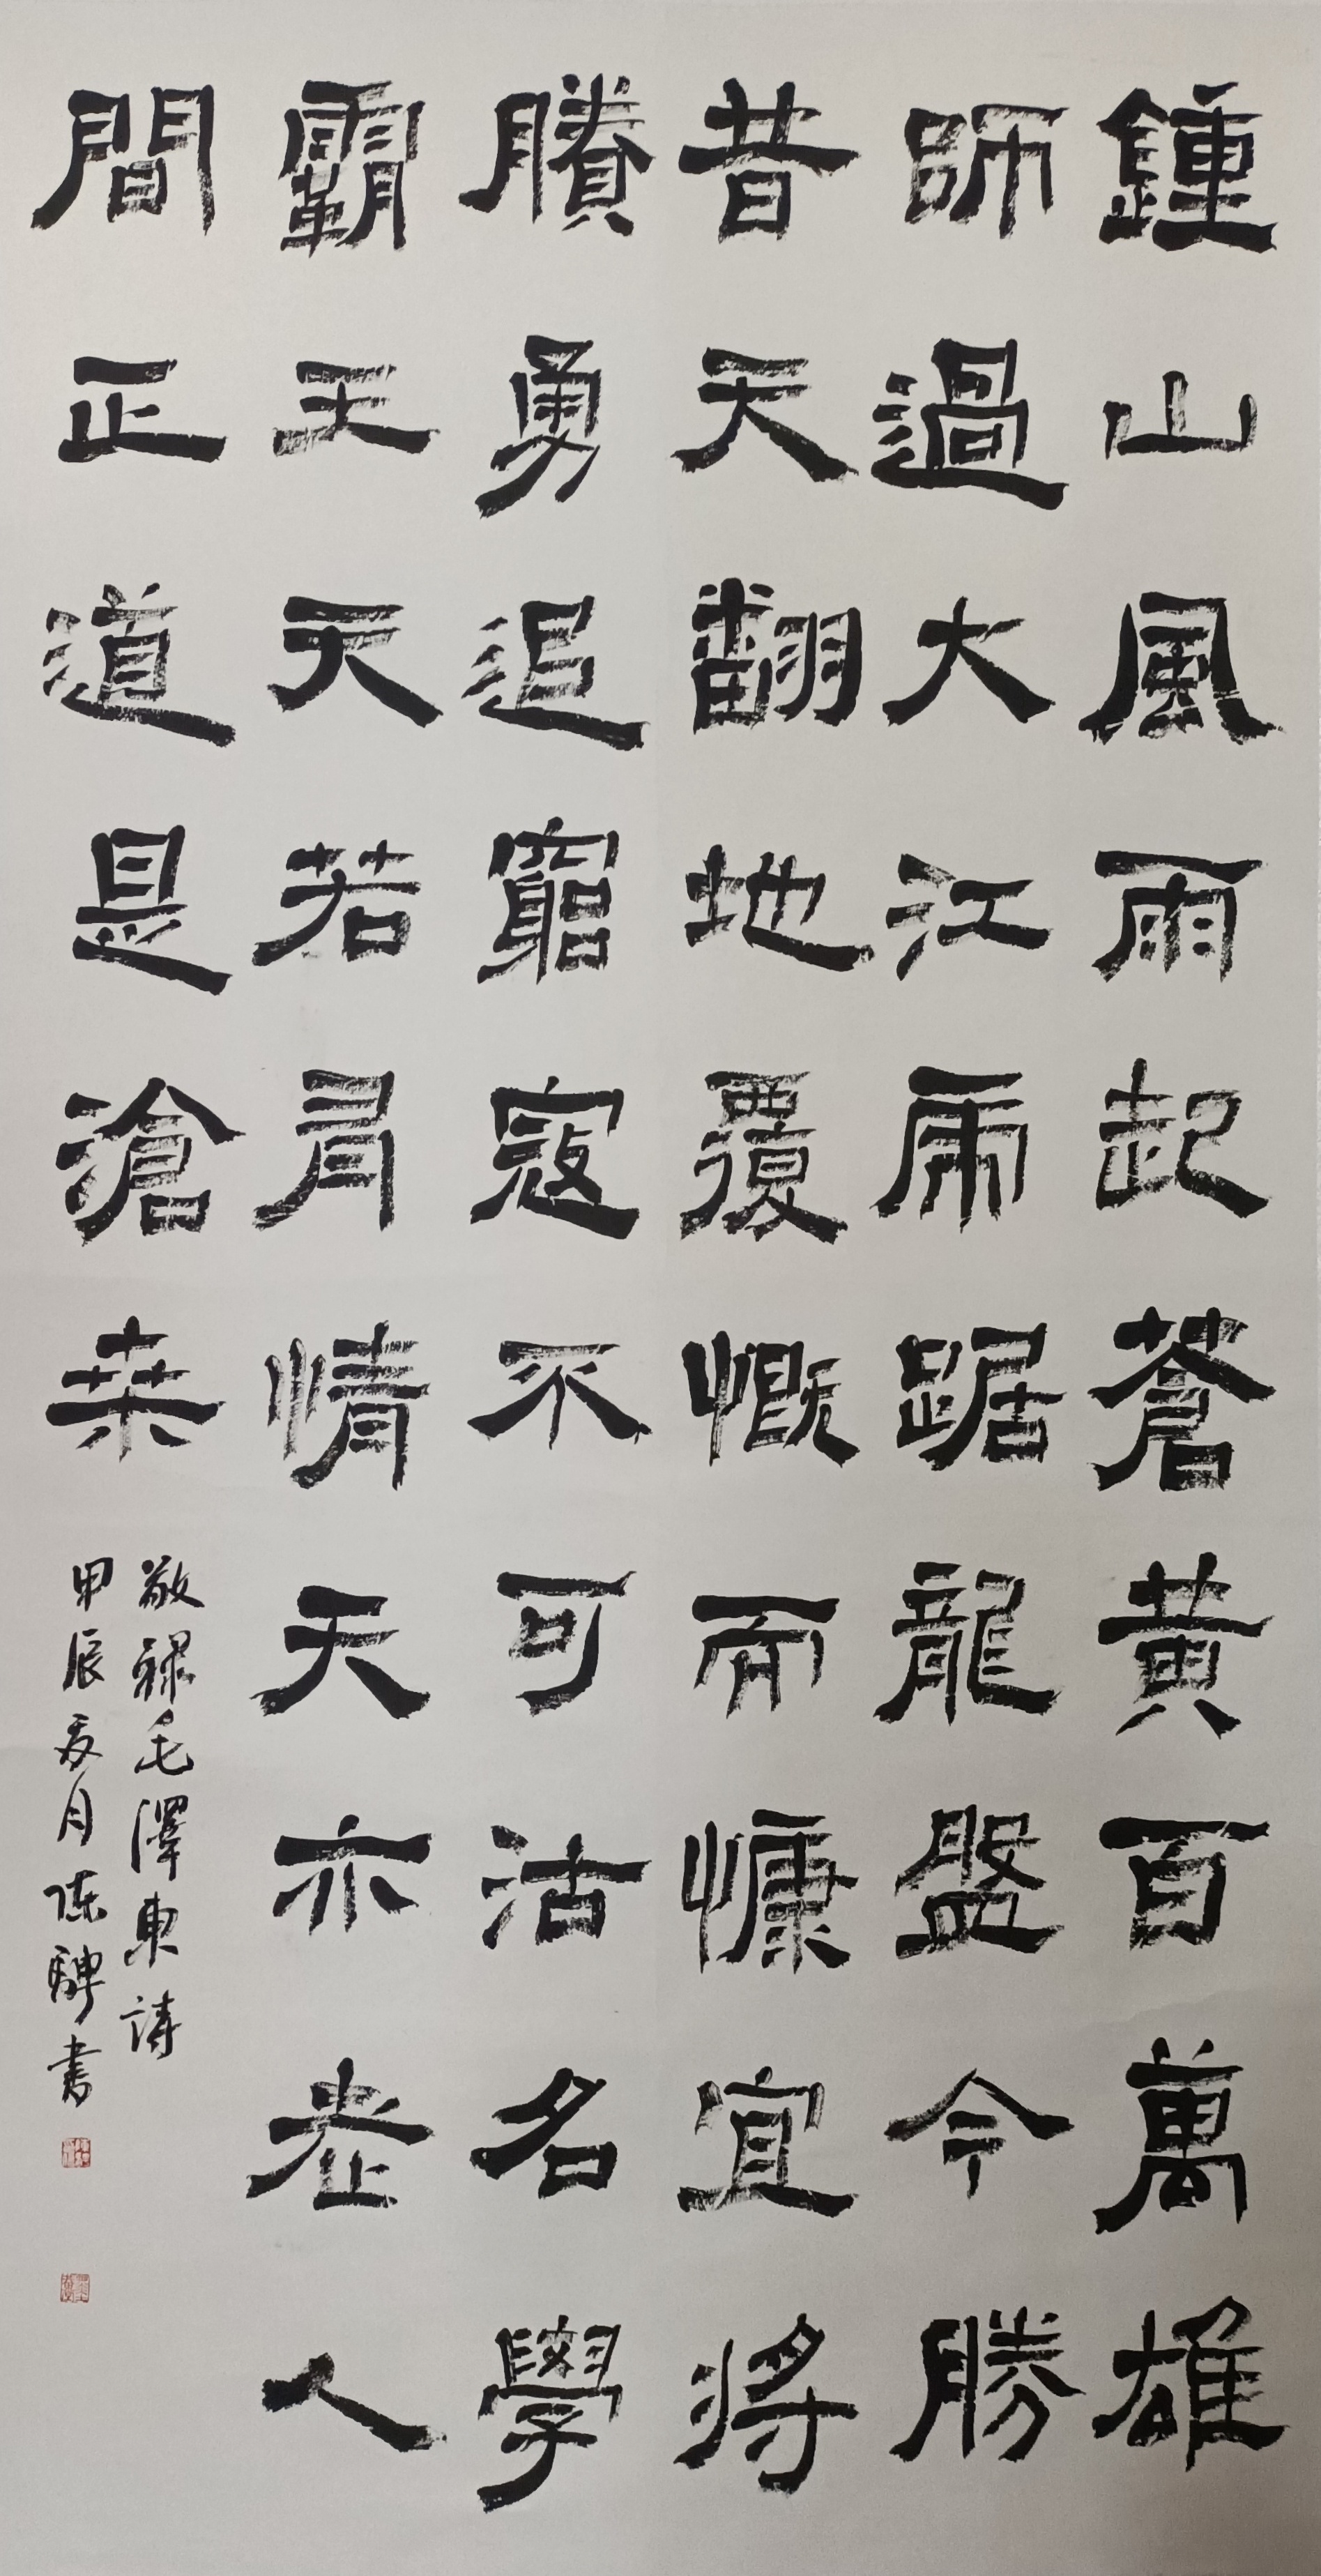 鍾山風雨起蒼黃百萬雄
師過大江虎踞龍盤今勝
昔天翻地覆慨而慷宜將
賸勇追窮寇不可沽名學
霸王天若有情天亦老人
間正道是滄桑
敬録毛澤東詩
甲辰夏月陈騁書